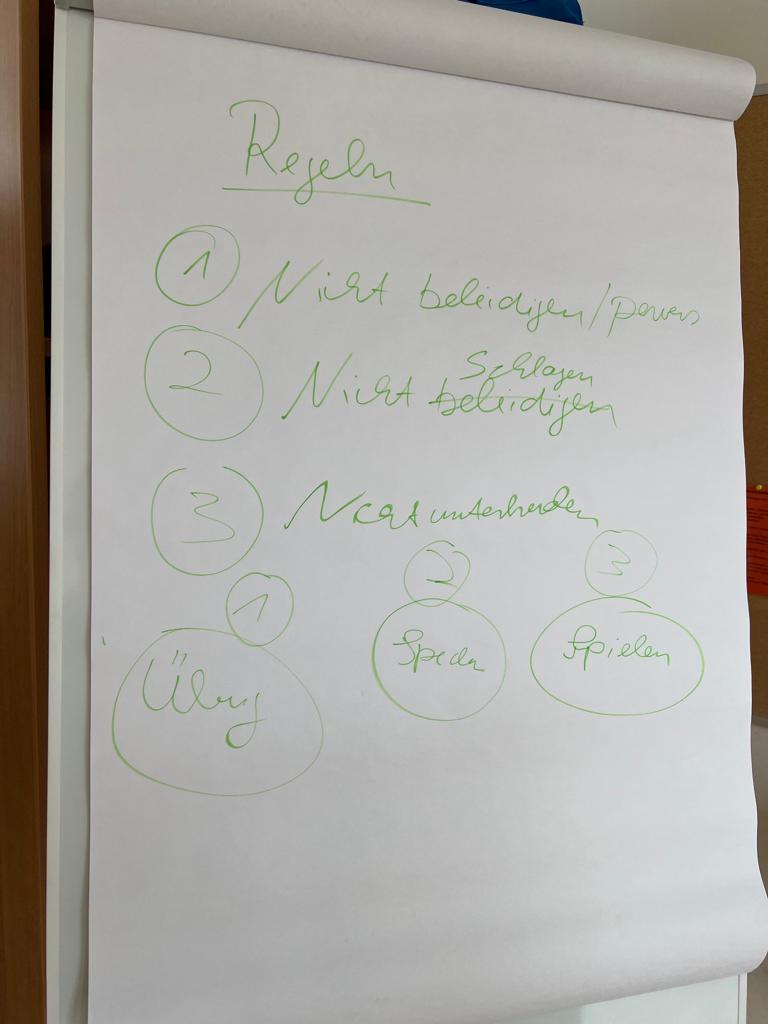 Regeln
1 Nicht beleidigen/pervers
Schlagen
2 Nicht beleidigen
3 Nicht
1 2 3
Übung Spielen